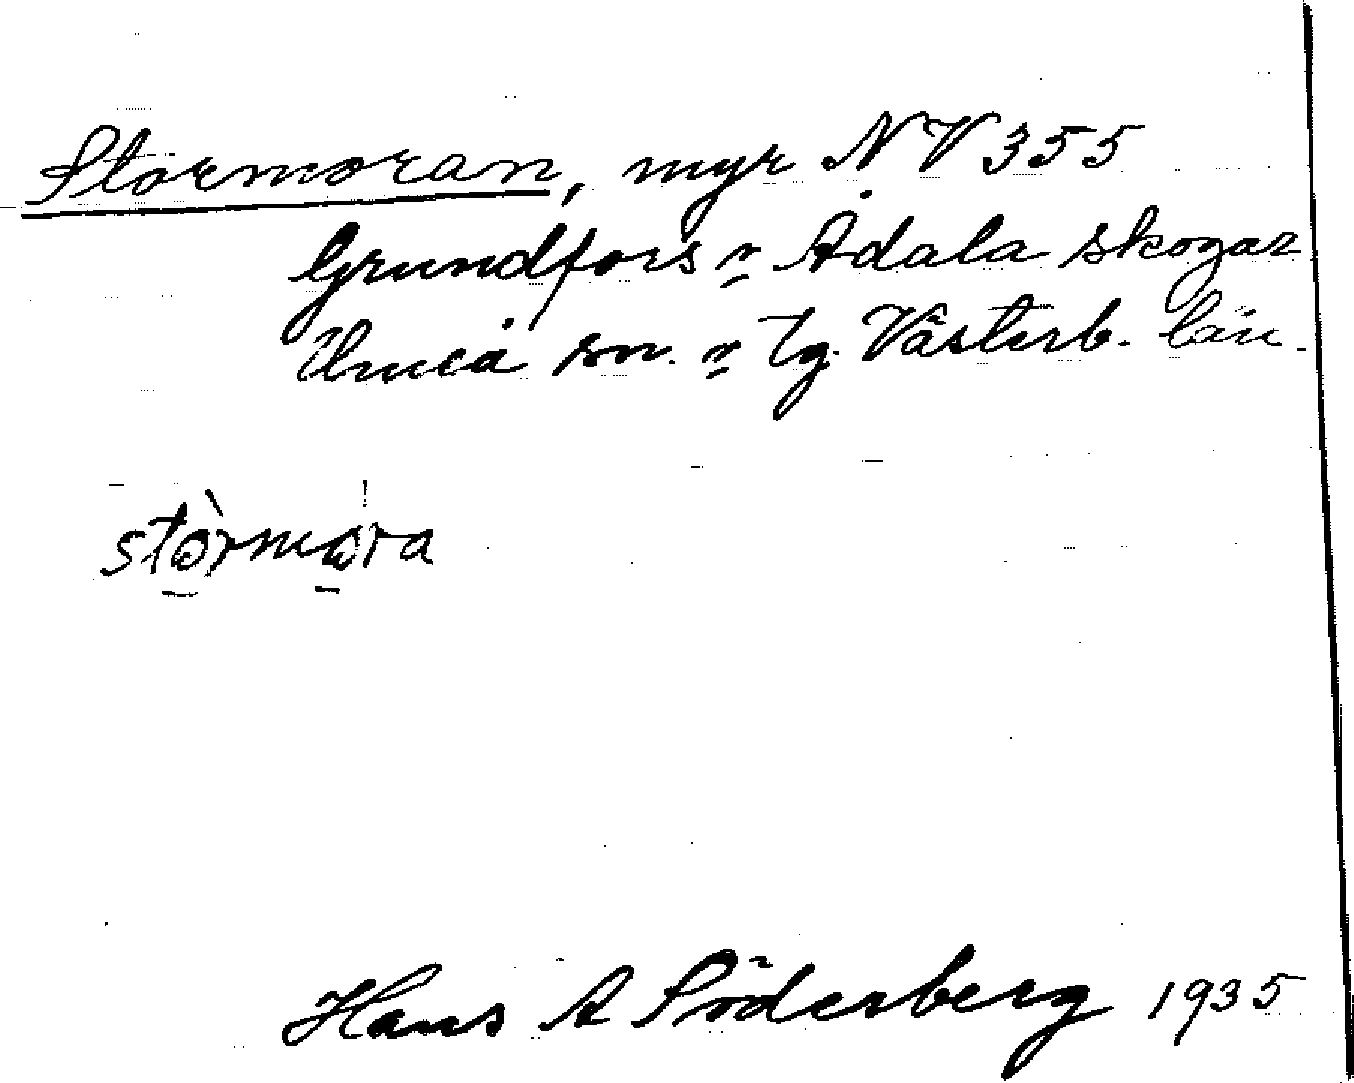 Stormoran, myr NV 355
Grundfors v Ådala skogar
Umeå sn. v Tg. Västerb. län.
stòrmora
Hans A Söderberg 1935